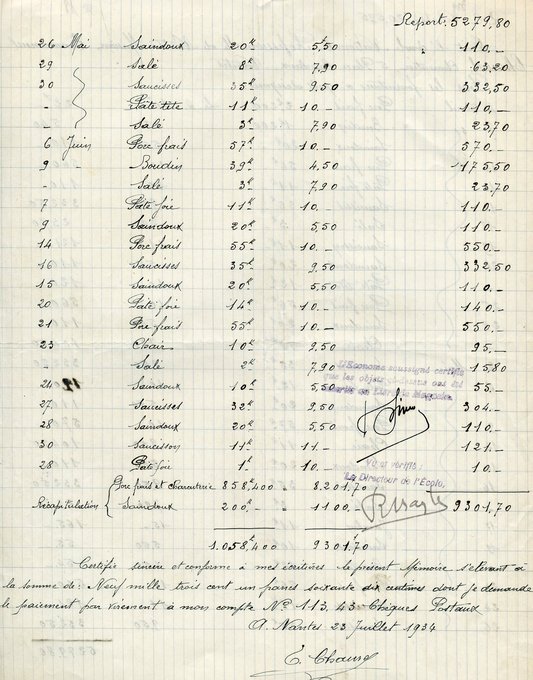 Report. 5279,80
26 Mai Saindoux 20k 5,50 110.-
29 Salé 8k 7,90 63,20
30 Saucisses 35k 9,50 332,50
- Pate tete 11k 10.- 110.-
- Salé 3k 7,90 23,70
6 Juin Porc frais 57k 10.- 570.-
9 Boudin 39k 4,50 175,50
- Salé 3k 7,90 23,70
7 Pate foie 11k 10.- 110.-
9 Saindoux 20k 5,50 110.-
14 Porc frais 55k 10.- 550.-
16 Saucisses 35k 9,50 332,50
15 Saindoux 20k 5,50 110.-
20 Paté foie 14k 10.- 140.-
21 Porc frais 55k 10.- 550.-
23 Chair 10k 9,50 95.-
- Salé 2k 7,90 15,80
L'Econome soussigné certifie
que les objets ci-dessus ont été
24 Saindoux 10k 5,50 55.-
27 Saucisses 32k 9,50 304.-
28 Saindoux 20k 5,50 110.-
30 Saucisson 11k 11.- 121.-
28 Pate foie 1k 10.- 10.-
Vu et vérifié:
Le Directeur de l'Ecole,
Porc frais et charcuterie 858k,400 8.201,70
Récapitulation Saindoux 200k.- 1100.- 9301,70
1.058k,400 9301,70
Certifié sincère et conforme à mes écritures le présent Mémoire s'élevant à
la somme de: Neuf mille trois cent un francs soixante dix centimes dont je demande
le paiement par virement à mon compte No 113.43 Chèques Postaux
A. Nantes 23 Juillet 1934